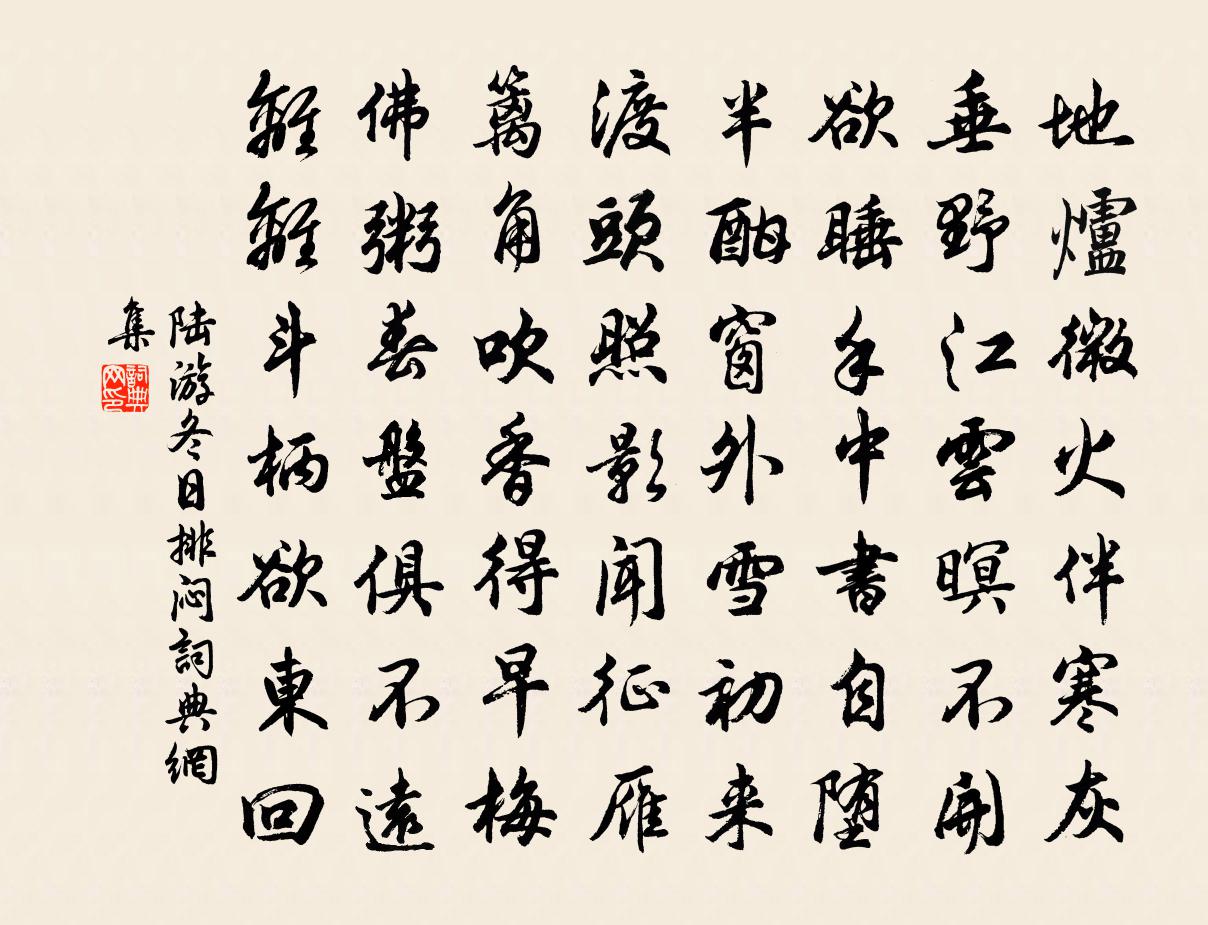 地爐微火伴寒灰
垂野江雲暝不開
欲睡手中書自堕
半酣窗外雪初来
渡頭照影聞征雁
籬角吹香得早梅
佛粥春盤俱不遠
離離斗柄欲東回
陆游冬日排闷詞典網
集
詞典
网印